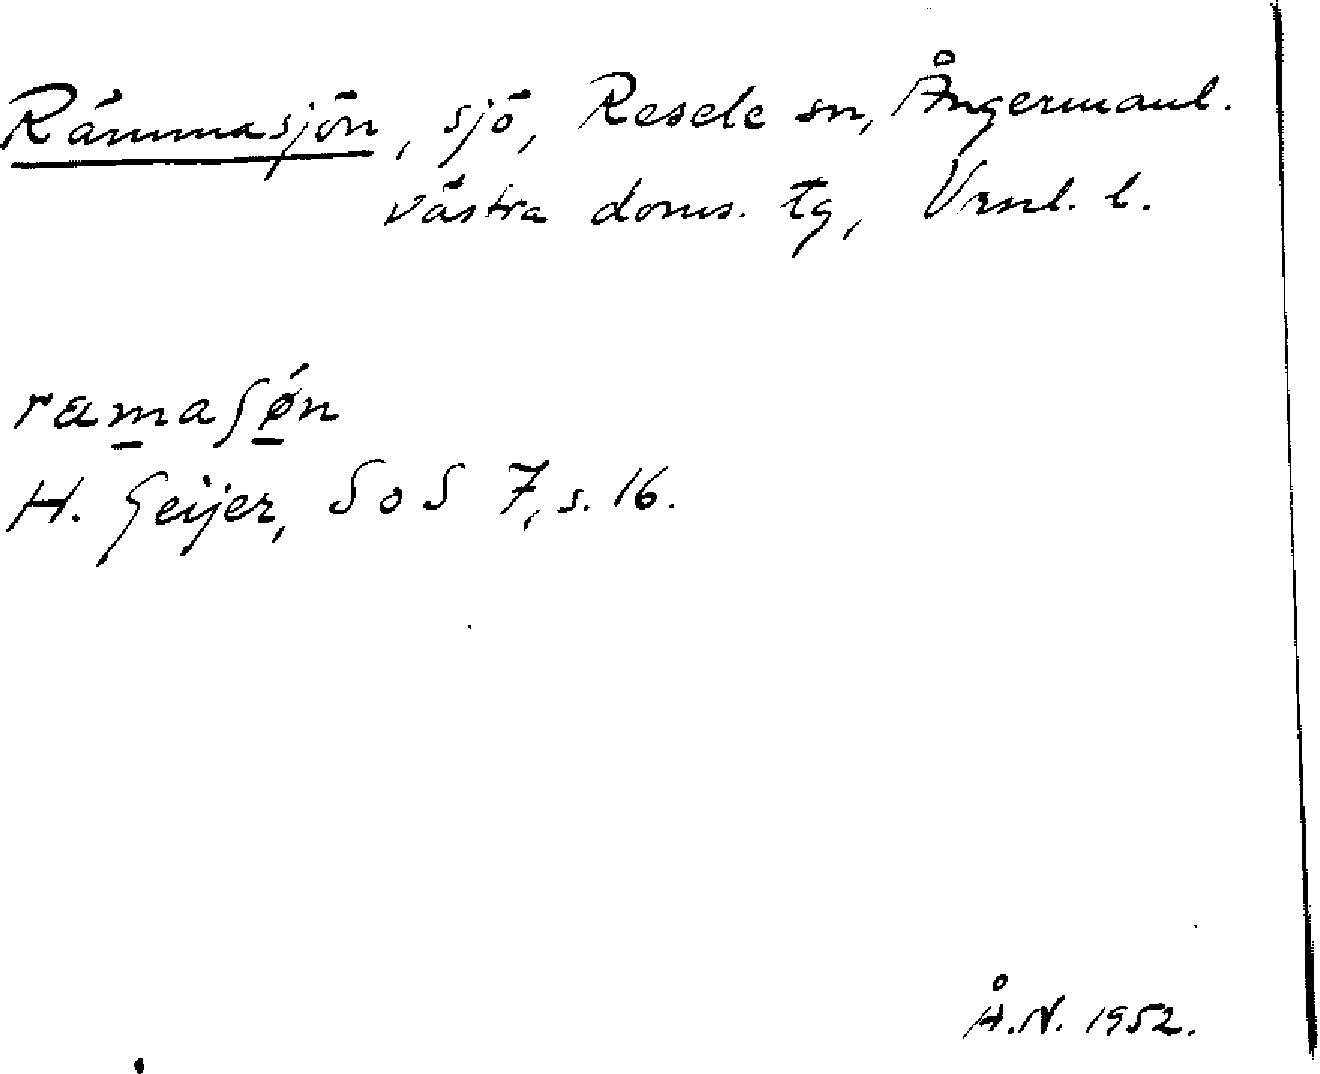 Rämmasjön, sjö, Resele sn, Ångermanl.
västra doms. tg, Vrnl. l.
ramaʃøń
H. Geijer, SoS 7, s. 16.
Å.N. 1952.